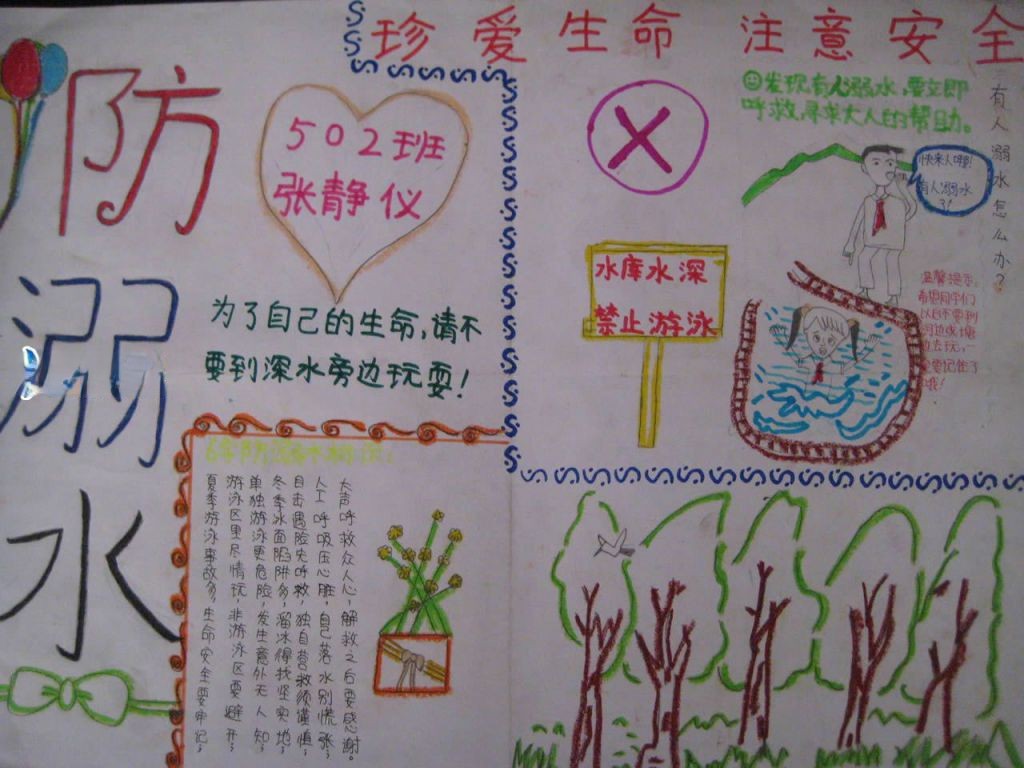 珍爱生命 注意安全
防溺水
502班
张静仪
为了自己的生命,请不
要到深水旁边玩耍!
水库水深
禁止游泳
发现有人溺水,要立即
呼救,寻求大人的帮助。
有人溺水怎么办?
快来人哪!
有人溺水
了!
温馨提示:
希望同学们
以后不要到
河边或塘
边去玩,一
定要记住了
哦!
夏季游泳事故多,生命安全要牢记;
游泳区里尽情玩,非游泳区要避开;
单独游泳更危险,发生意外无人知;
冬季冰面陷阱多,溜冰得找坚实地;
自击遇险先呼救,独自营救须谨慎;
人工呼吸压心脏,自己落水别慌张;
大声呼救众人心,解救之后要感谢。